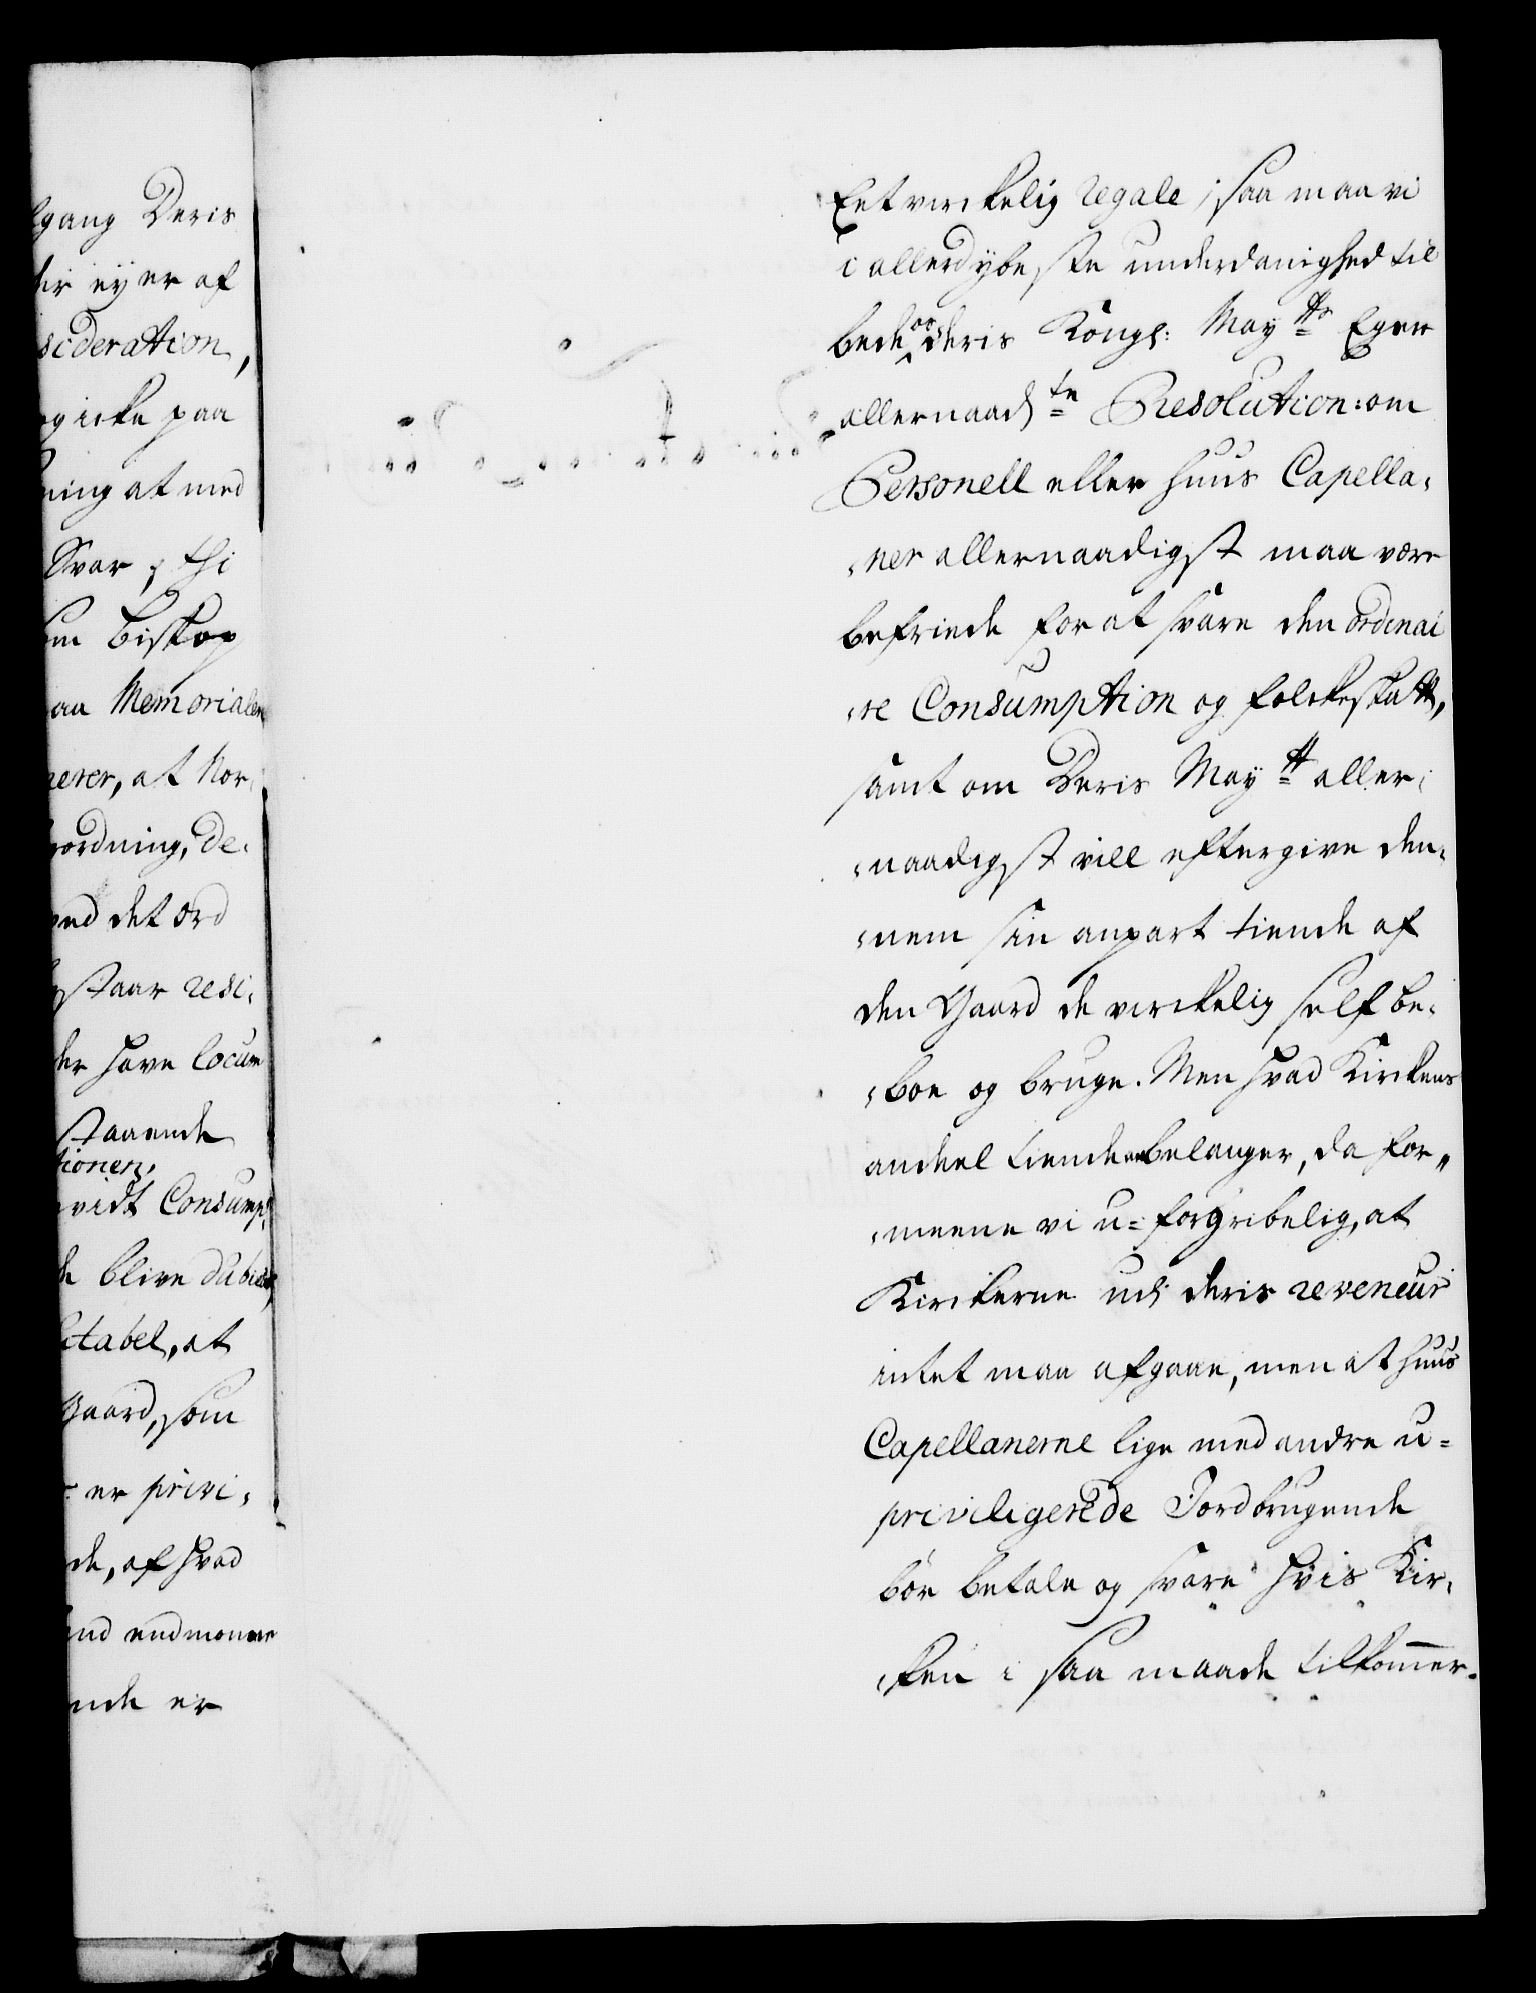 lgang Deris
der ey er af
sideration,
og icke paa
ning at med
Svar, thi
om Biskop
aa Memorialen
nerer, at Nor,
ordning, De,
ved det ord
staar resi,
der have locum
staaende
tionen,
vidt Consump,
de blive dubiøs,
ctabel, at
Gaard, som
er privi,
de, af hvad
end endmonnre
nde er
Eet virckelig regale; saa maa vi
i allerdybeste underdanighed til
bede os deris Kongl: May.ts Egen
allernaad.te Resolution: om
Personell eller huus Capella,
,ner allernaadigst maa være
befriede for at svare den ordinai
,re Consumption og folckeskatt,
samt om Deris May.tt aller,
,naadigst vill eftergive den,
,nem sin anpart tiende af
den Gaard de virckelig self be,
,boe og bruge. Men hvad Kirckens
andeel tiender belanger, da for,,
,meene vi u-forgribelig, at
Kirckerne udi deris reveneur
intet maa afgaae, men at huus
Capellanerne lige med andre u-
priviligerede Jordbrugende
bør betale og svare hvis Kir,
,ken i saa maade tilkommer.